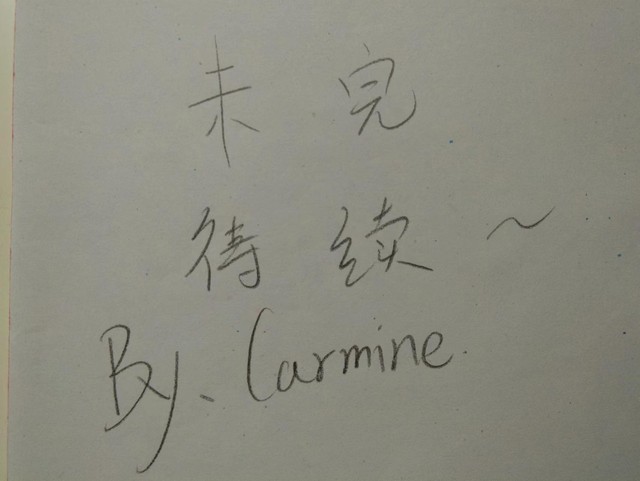 未完
待续~
By. Carmine.